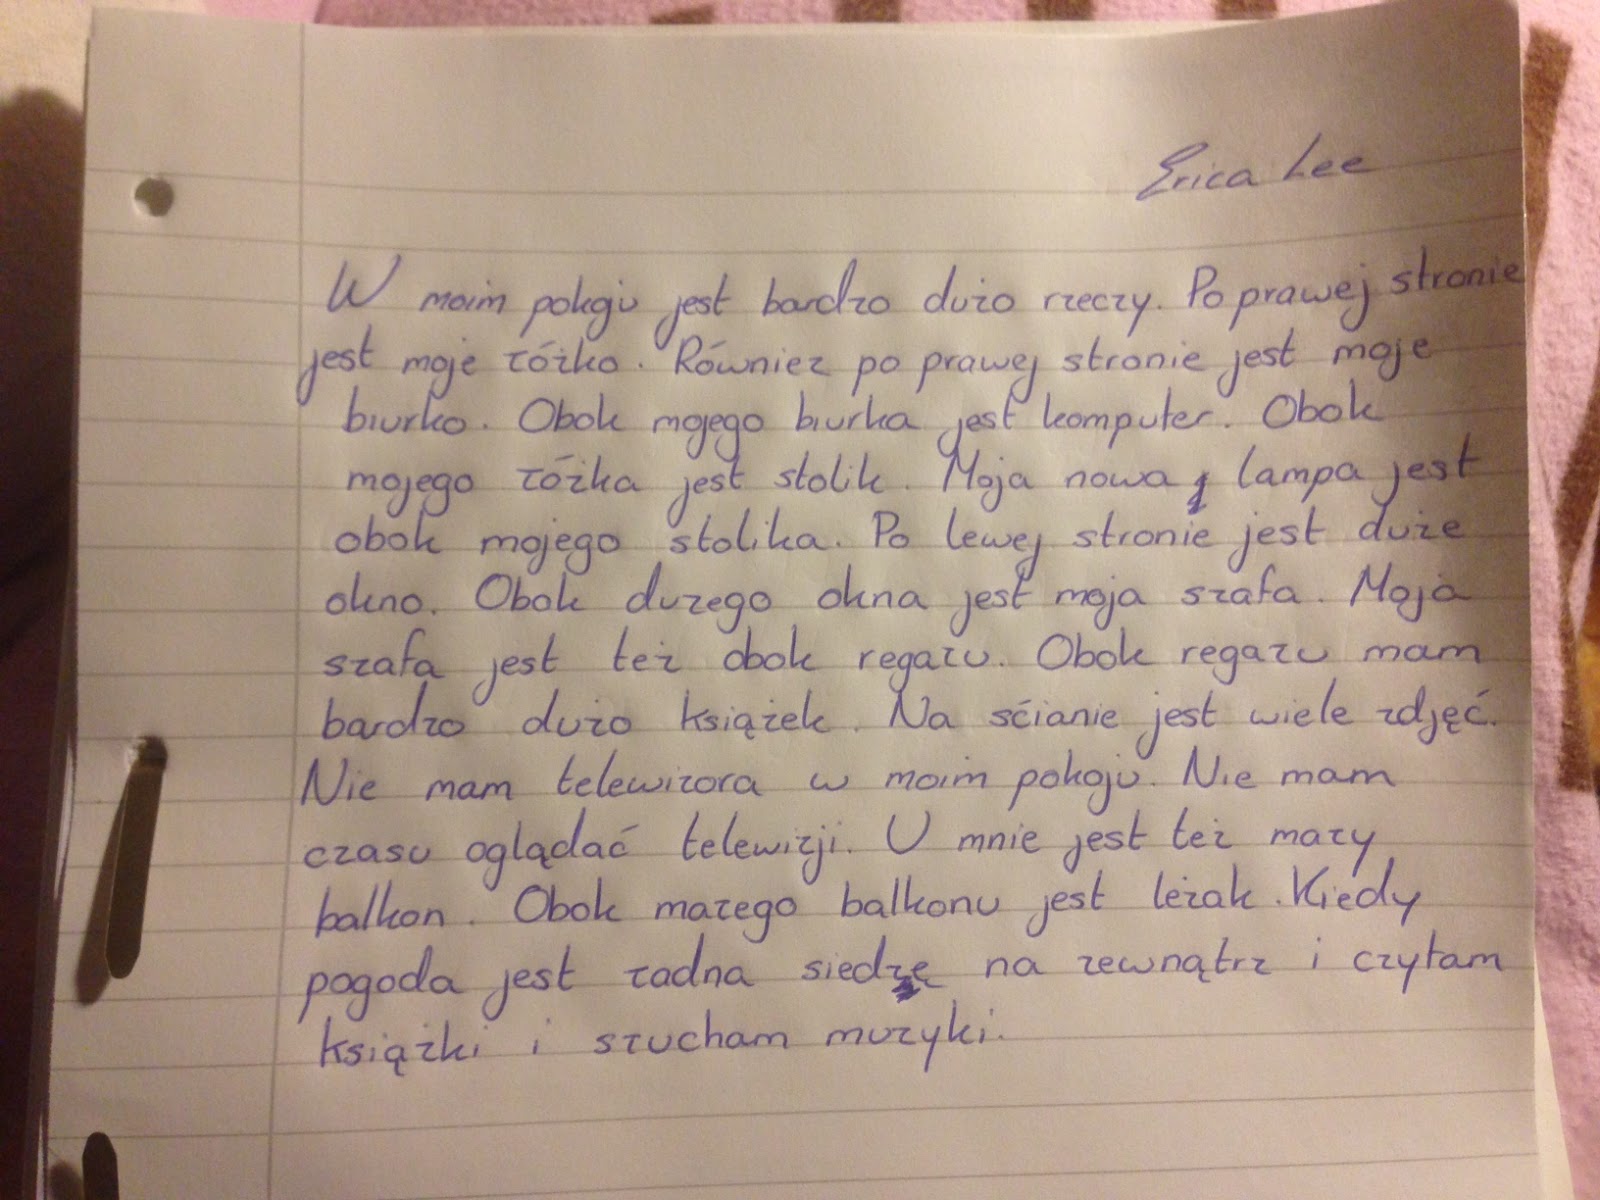 Erica Lee
W moim pokoju jest bardzo dużo rzeczy. Po prawej stronie
jest moje łóżko. Również po prawej stronie jest moje
biurko. Obok mojego biurka jest komputer. Obok
mojego łóżka jest stolik. Moja nowa lampa jest
obok mojego stolika. Po lewej stronie jest duże
okno. Obok dużego okna jest moja szafa. Moja
szafa jest też obok regału. Obok regału mam
bardzo dużo książek. Na sćianie jest wiele zdjęć.
Nie mam telewizora w moim pokoju. Nie mam
czasu oglądać telewizji. U mnie jest też mały
balkon. Obok małego balkonu jest leżak. Kiedy
pogoda jest ładna siedzę na zewnątrz i czytam
książki i słucham muzyki.